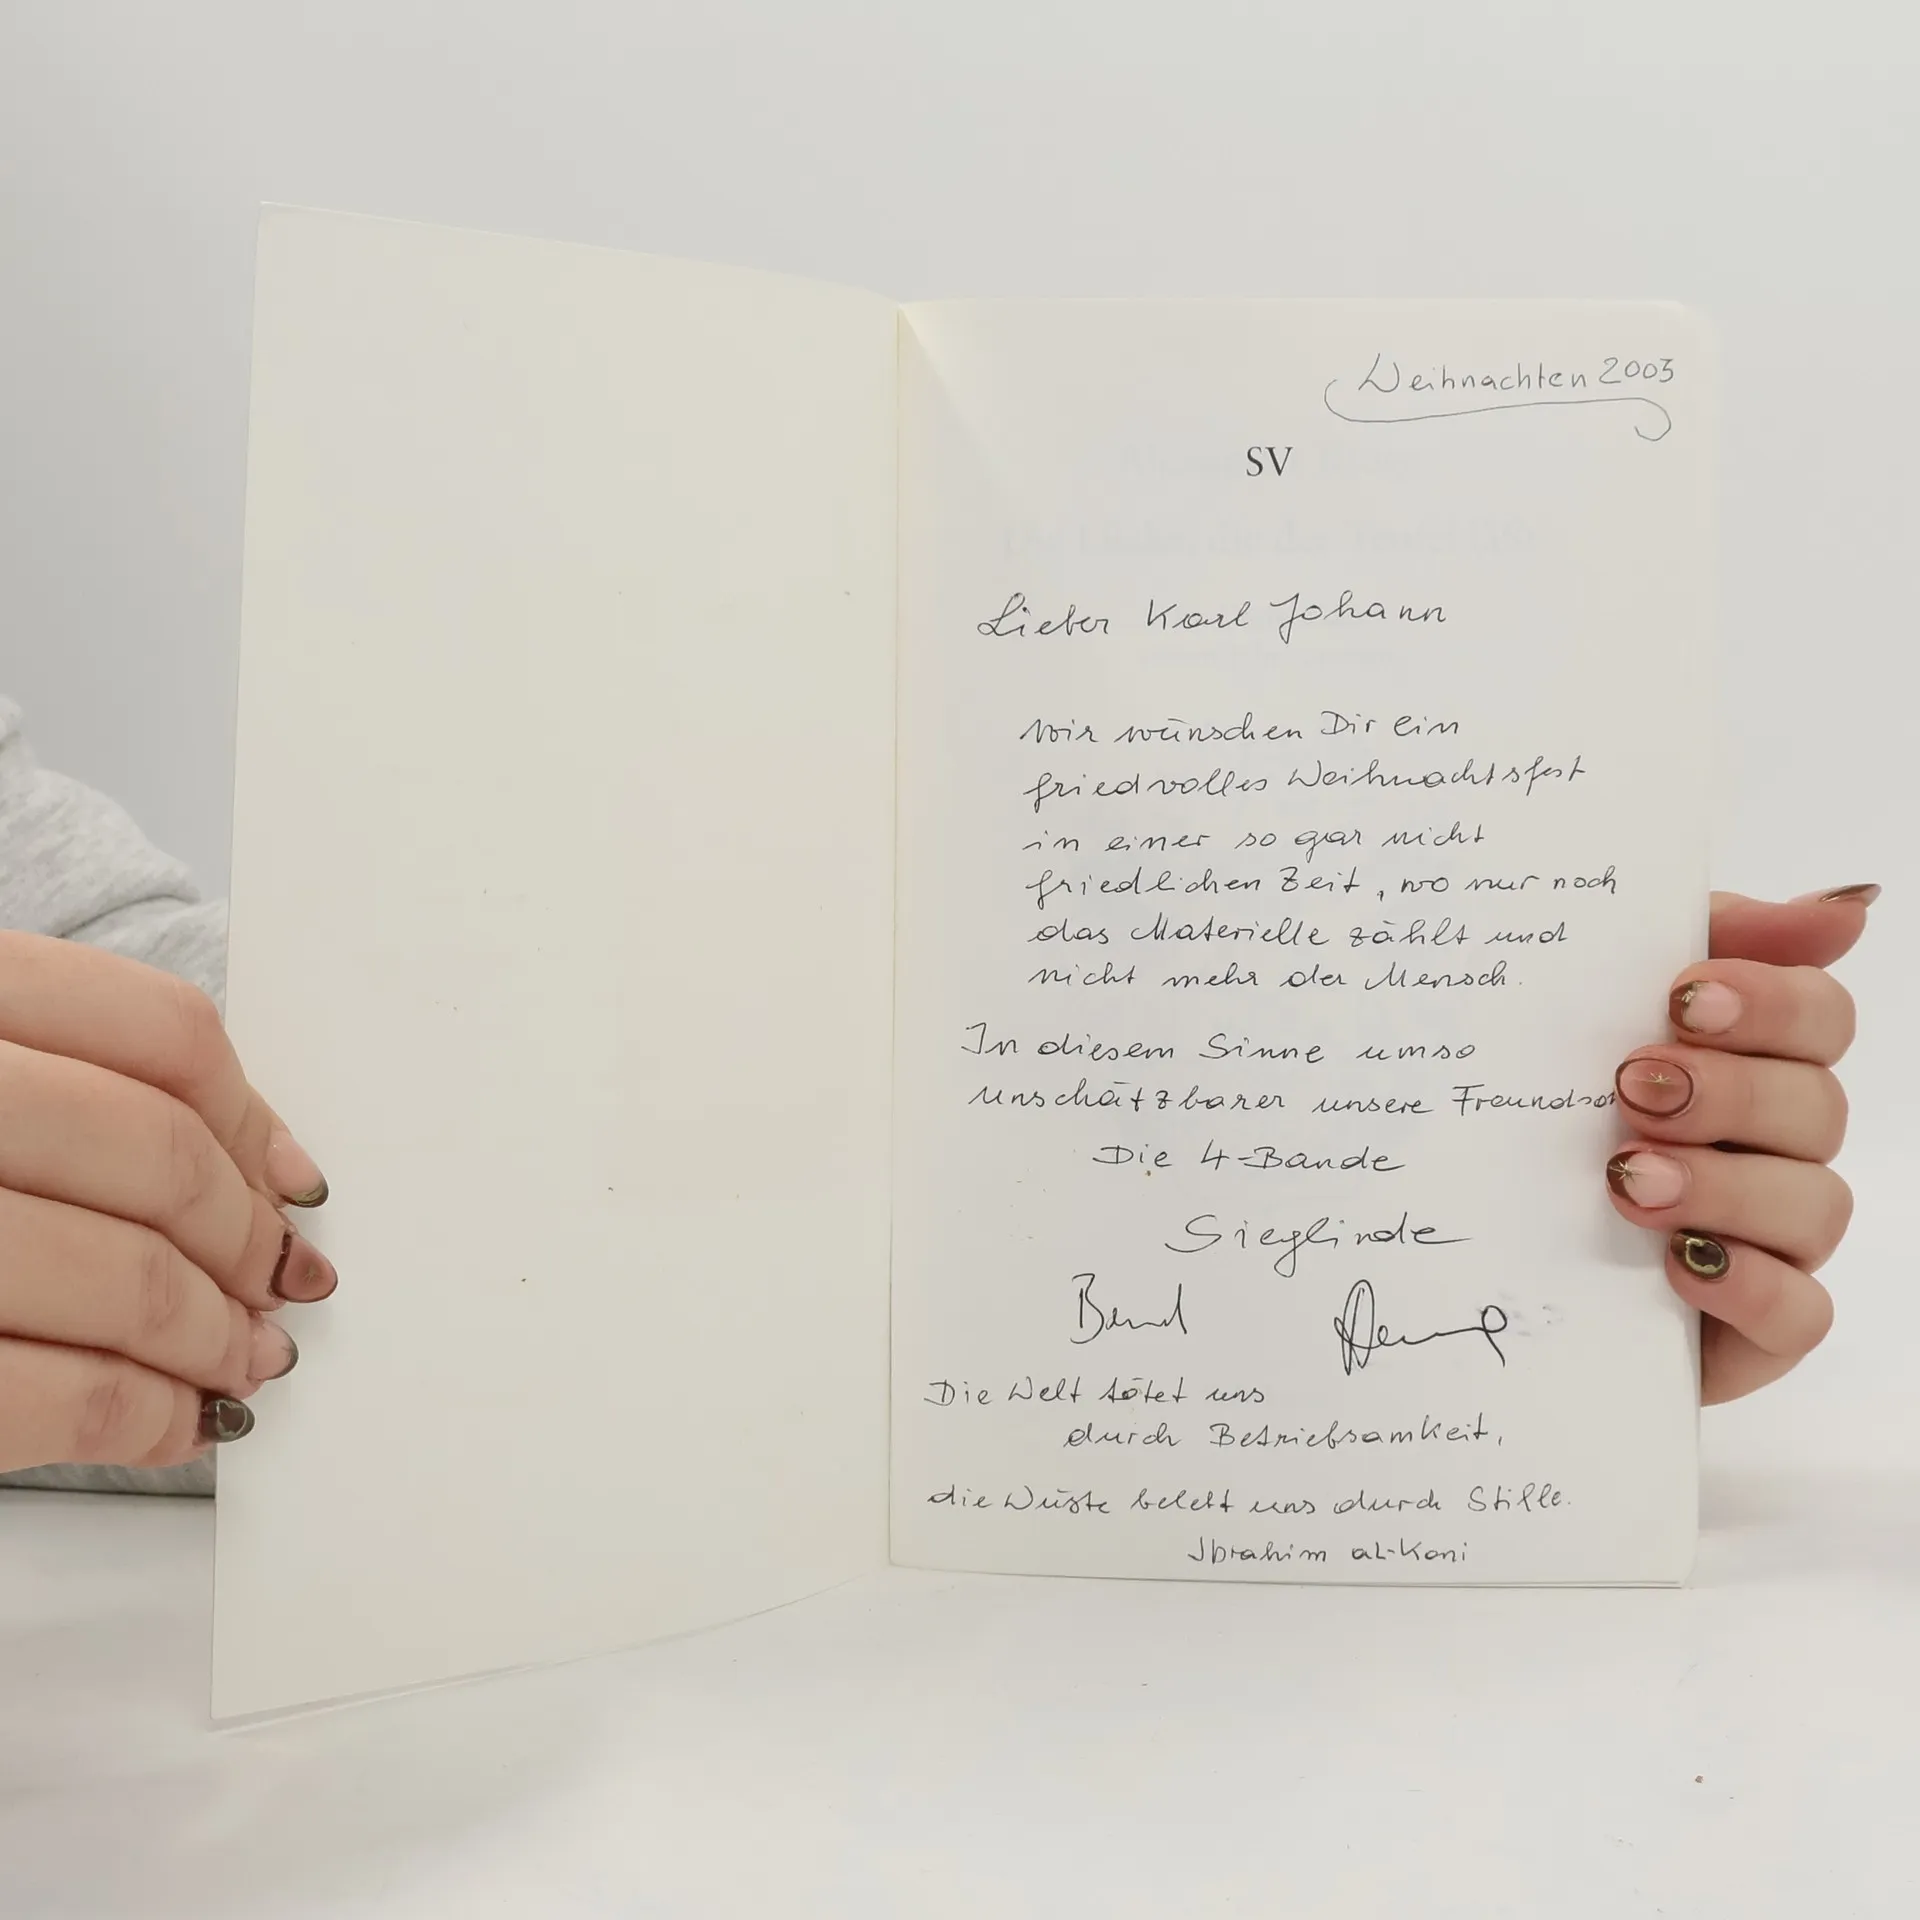 Weihnachten 2003
SV
Lieber Karl Johann
Wir wünschen Dir ein
friedvolles Weihnachtsfest
in einer so gar nicht
friedlichen Zeit, wo nur noch
das Materielle zählt und
nicht mehr der Mensch.
In diesem Sinne umso
unschätzbarer unsere Freundsch
Die 4-Bande
Sieglinde
Bernd
Die Welt tötet uns
durch Betriebsamkeit,
die Wüste belebt uns durch Stille.
Ibrahim al-Koni